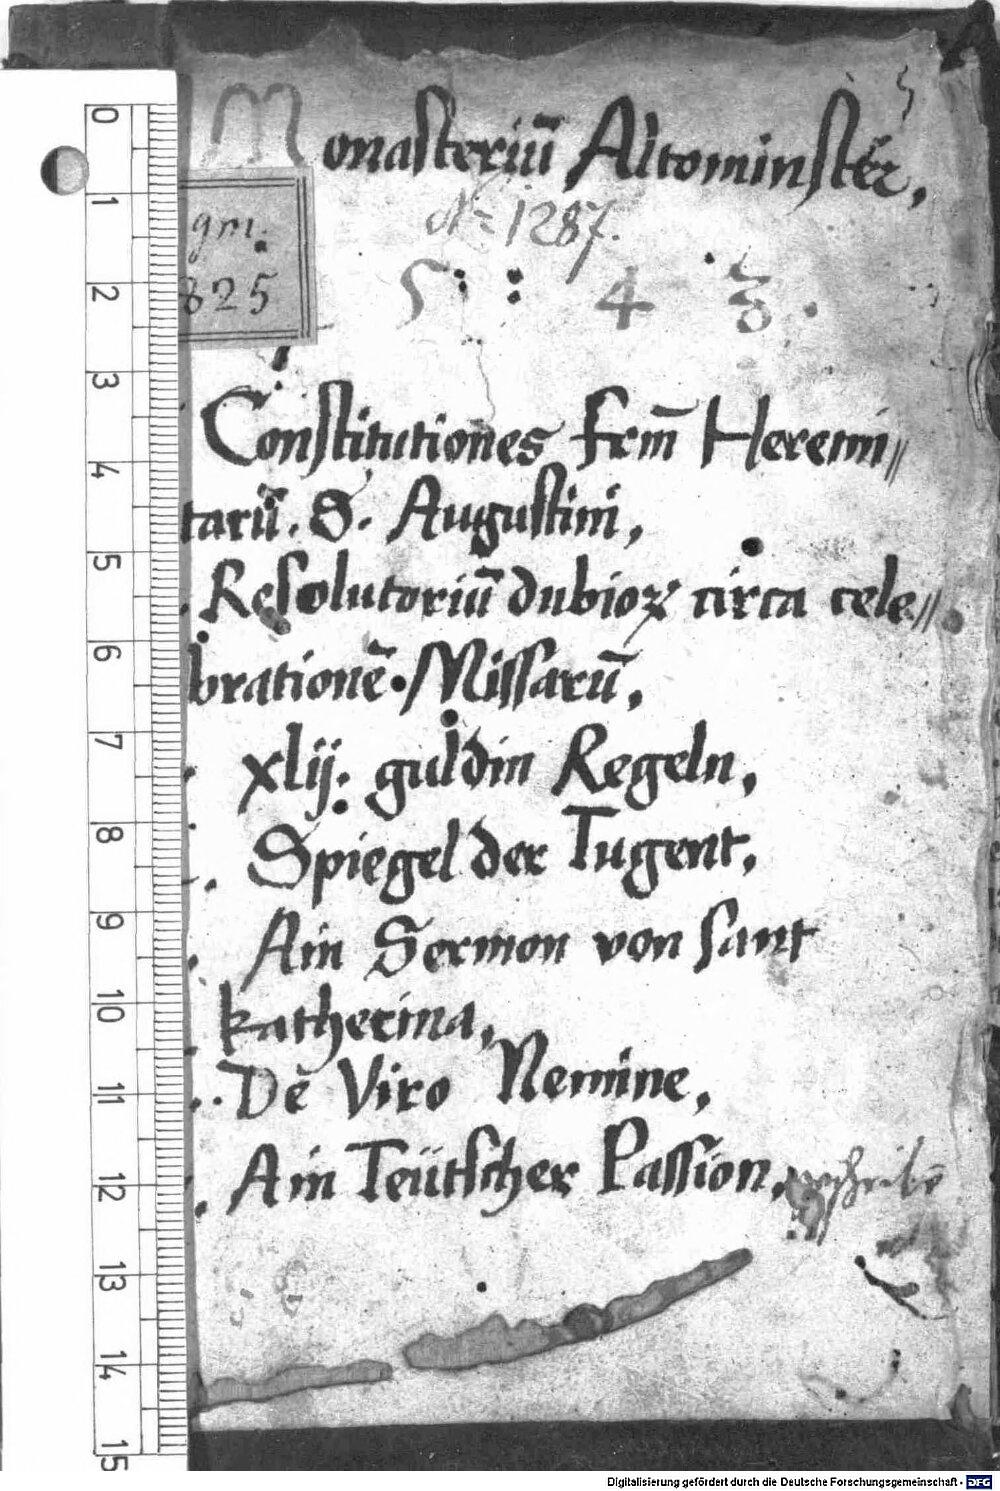 Monasteriū Altominster,
gm.
825
N: 1287.
5 : 4 8 .
Constitutiones frm̄ Heremi//
tarū. S. Augustini,
Resolutoriū dubioꝝ circa cele//
brationē. Missarū,
xlij. guldin Regeln,
Spiegel der Tugent,
Ain Sermon von sant
katherina,
De Viro Nemine,
Ain Teütscher Passion,
0
1
2
3
4
5
6
7
8
9
10
11
12
13
14
15
Digitalisierung gefördert durch die Deutsche Forschungsgemeinschaft - DFG